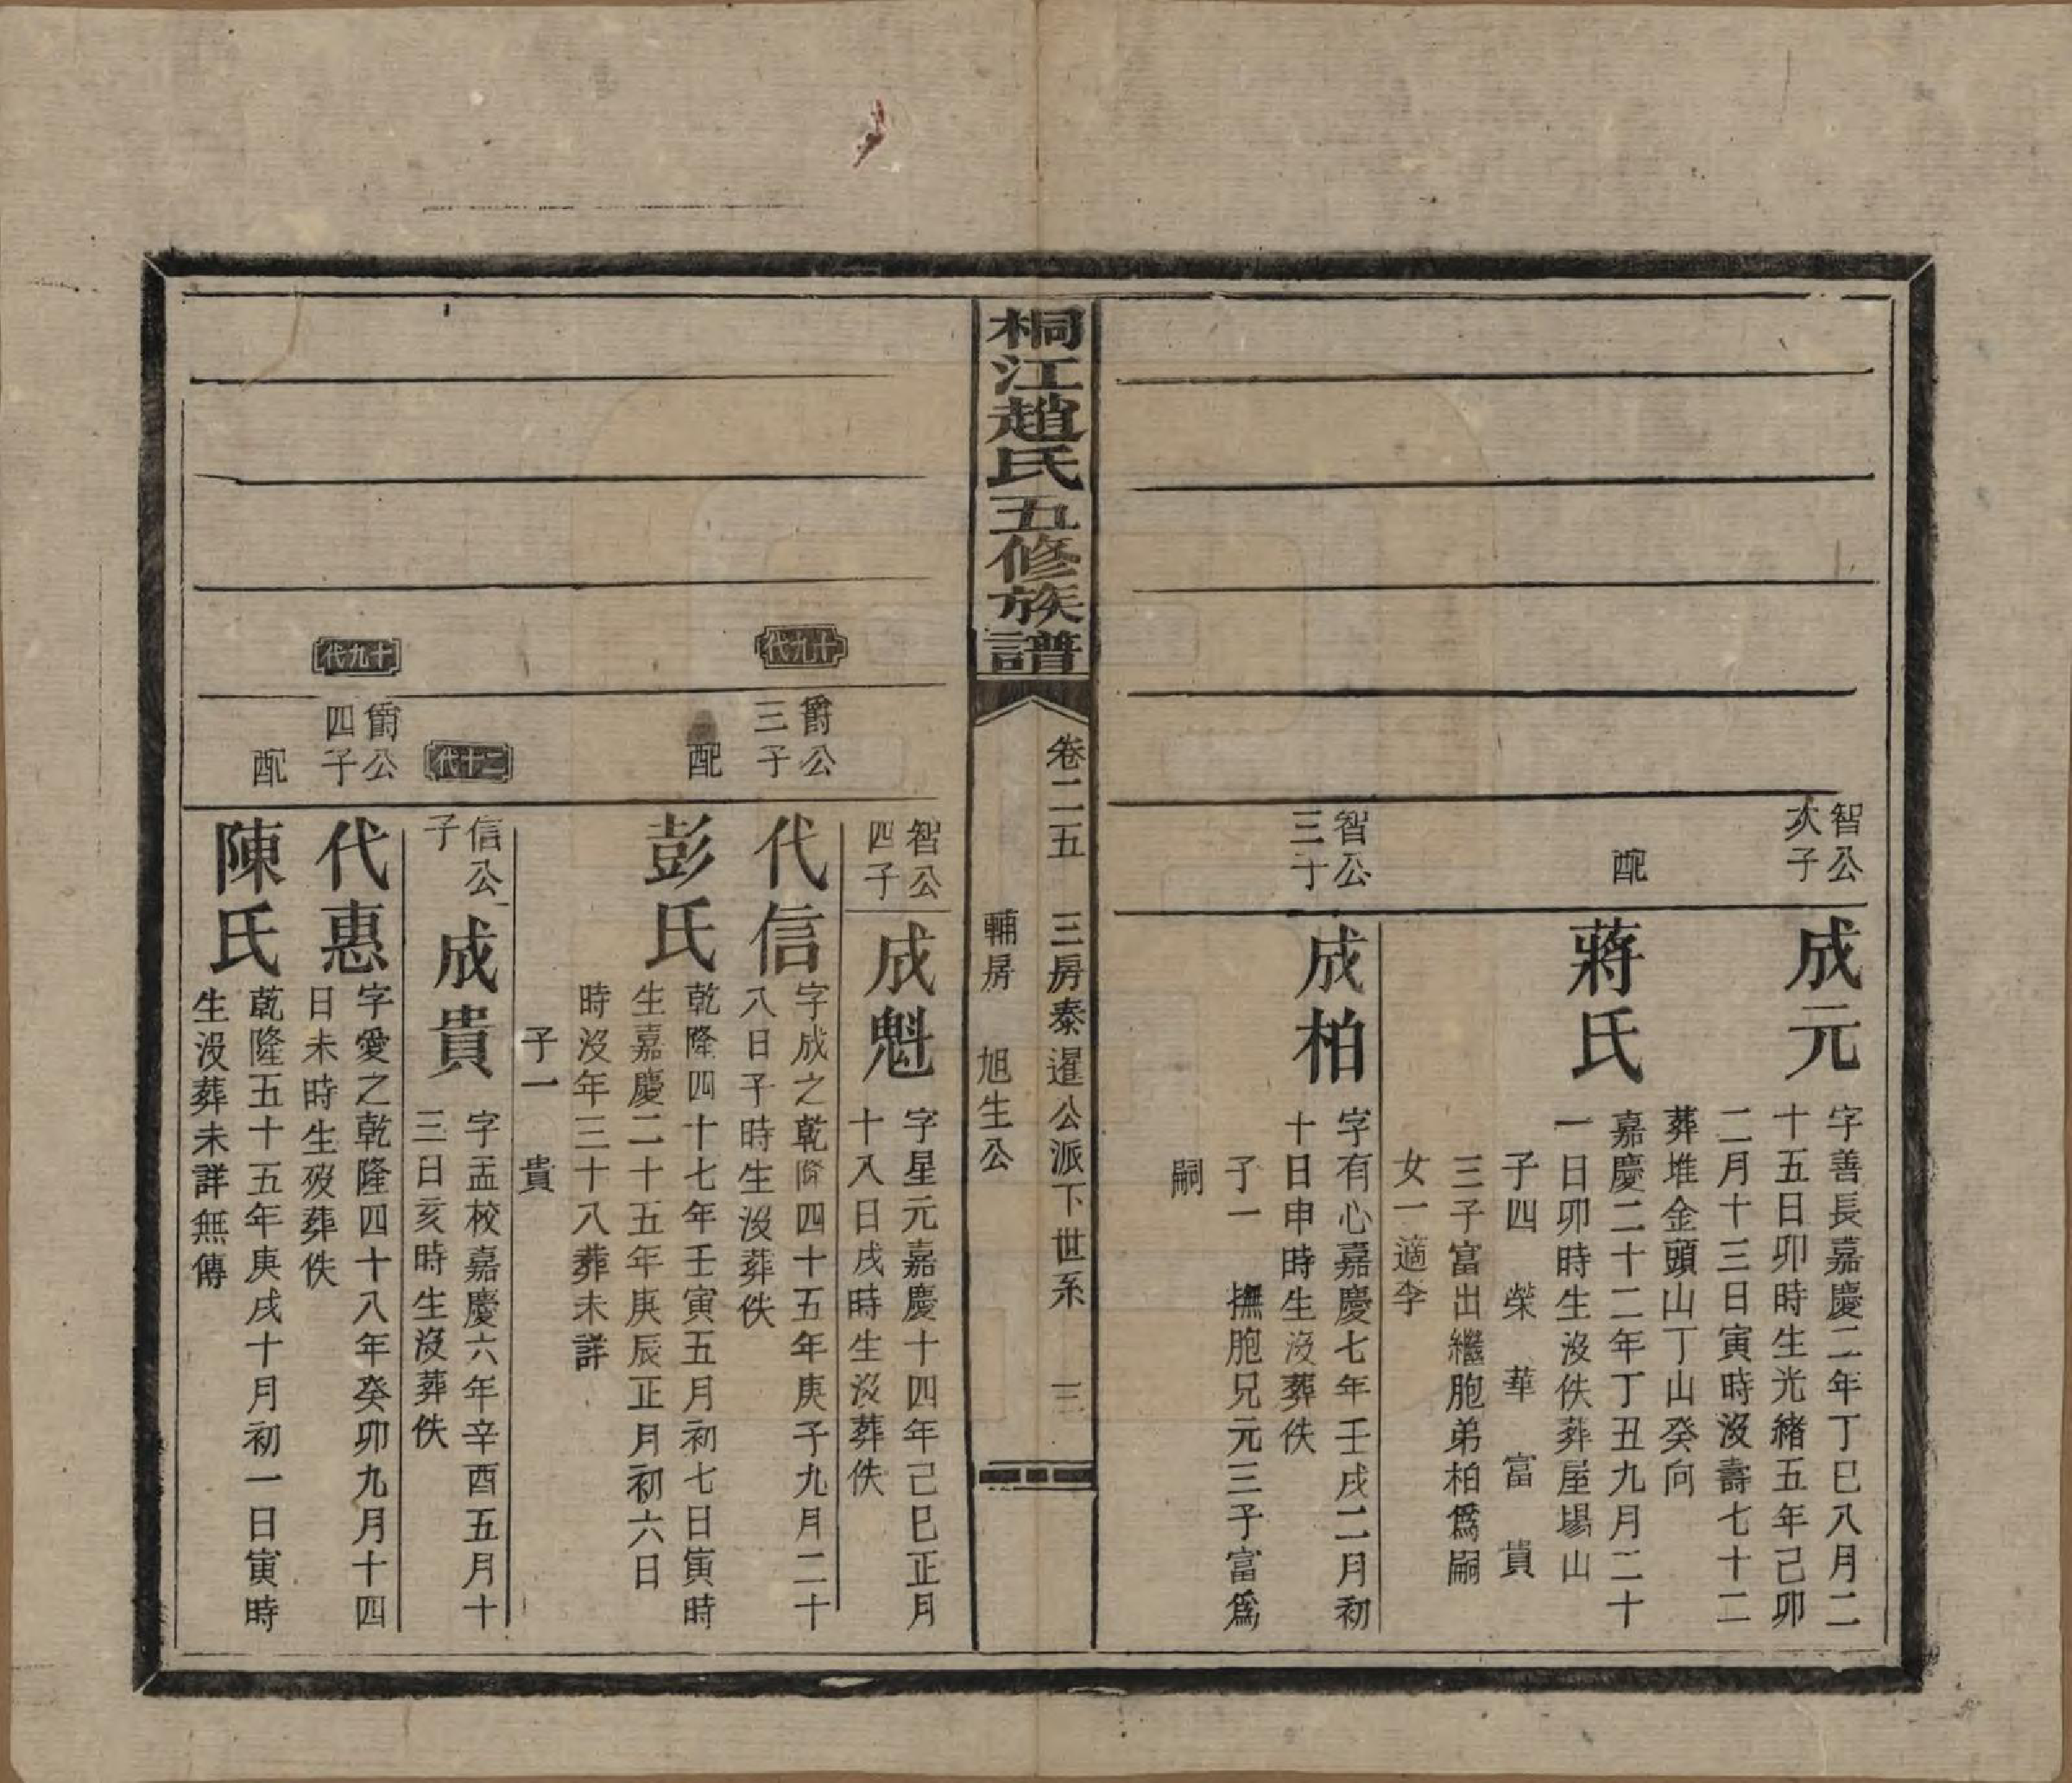 智公
次子
成元
字善長嘉慶二年丁巳八月二
十五日卯時生光緒五年己卯
二月十三日寅時沒壽七十二
葬堆金頭山丁山癸向
配
蔣氏
嘉慶二十二年丁丑九月二十
一日卯時生沒佚葬屋場山
子四 榮 華 富 貴
三子富出繼胞弟柏爲嗣
女一適李
智公
三子
成柏
字有心嘉慶七年壬戌二月初
十日申時生沒葬佚
子一 撫胞兄元三子富爲
嗣
桐江趙氏五修族譜
卷二五 三房泰暹公派下世系 三
輔房 旭生公
智公
四子
成魁
字星元嘉慶十四年己巳正月
十八日戌時生沒葬佚
十九代
爵公
三子
代信
字成之乾隆四十五年庚子九月二十
八日子時生沒葬佚
配
彭氏
乾隆四十七年壬寅五月初七日寅時
生嘉慶二十五年庚辰正月初六日
時沒年三十八葬未詳
子一 貴
二十代
信公
子
成貴
字孟校嘉慶六年辛酉五月十
三日亥時生沒葬佚
十九代
爵公
四子
代惠
字愛之乾隆四十八年癸卯九月十四
日未時生歿葬佚
配
陳氏
乾隆五十五年庚戌十月初一日寅時
生沒葬未詳無傳